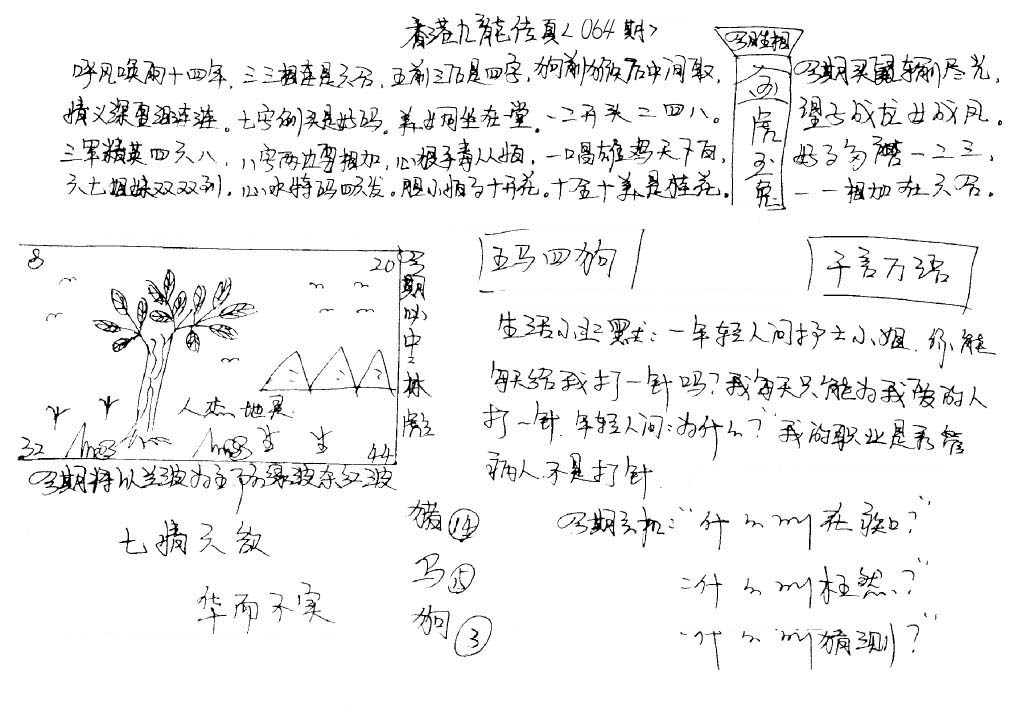 香港九龙传真<064期>
呼风唤雨十四年，三三相连是六合，五前三后是四字，狗前猴后中间取，
情义深重迎连连。七字例头是好码。养女同坐在堂。一二开头二四八。
三军精英四六八，八字两边要相加，心想年青从，一唱雄鸡天下白，
六七姐妹双双到，心水特码四六发。胆小十开花。十全十美是桂花。
期买尽光，
望子成龙女成凤。
好三，一二三，
一一相加在六合。
必胜相
狗虎玉兔
五马四狗
千言万语
8
20
人杰地灵
生 生
32
44
期必中林
期将以兰波为主防绿波杂红波
生活小幽默：一年轻人问护士小姐，你能
每天给我打一针吗？我每天只能为我爱的人
打一针，年轻人问：为什么？我的职业是
病人不是打针
七情六欲
华而不实
猪⑭
马⑮
狗③
期玄机："什么叫在？"
"什么叫枉然？"
"什么叫猜测？"